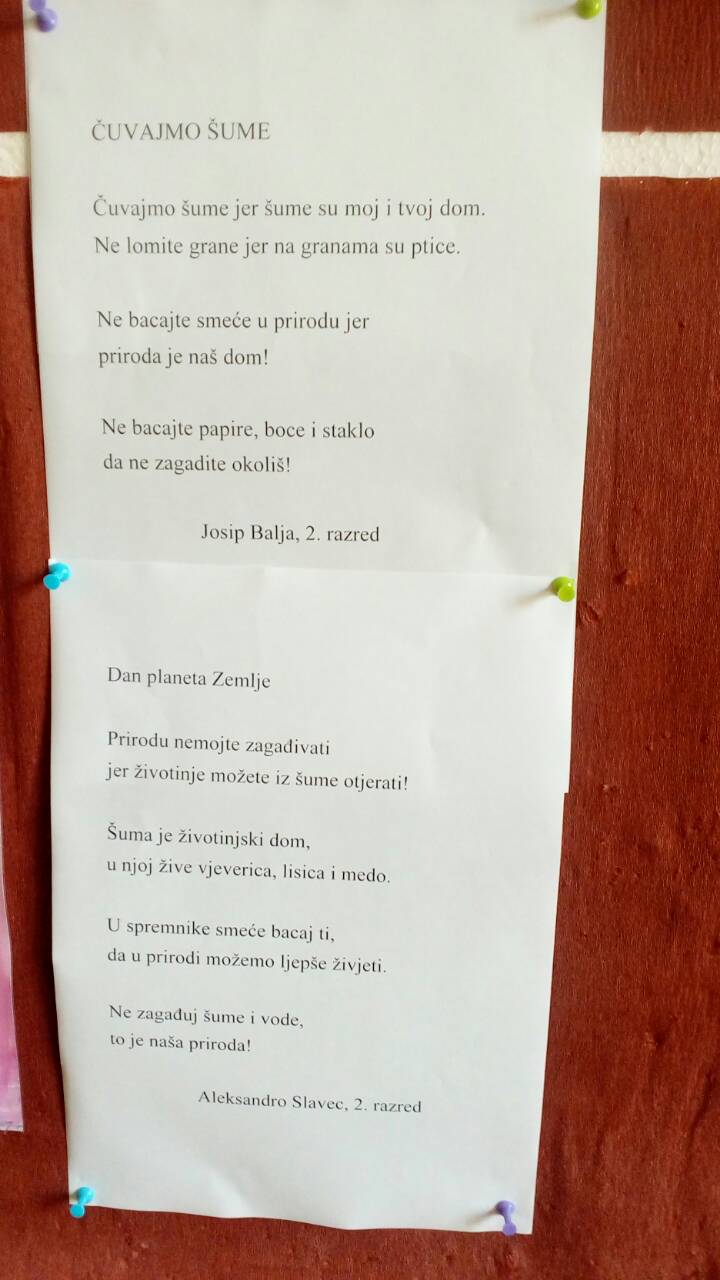 ČUVAJMO ŠUME
Čuvajmo šume jer šume su moj i tvoj dom.
Ne lomite grane jer na granama su ptice.
Ne bacajte smeće u prirodu jer
priroda je naš dom!
Ne bacajte papire, boce i staklo
da ne zagadite okoliš!
Josip Balja, 2. razred
Dan planeta Zemlje
Prirodu nemojte zagađivati
jer životinje možete iz šume otjerati!
Šuma je životinjski dom,
u njoj žive vjeverica, lisica i medo.
U spremnike smeće bacaj ti,
da u prirodi možemo ljepše živjeti.
Ne zagađuj šume i vode,
to je naša priroda!
Aleksandro Slavec, 2. razred